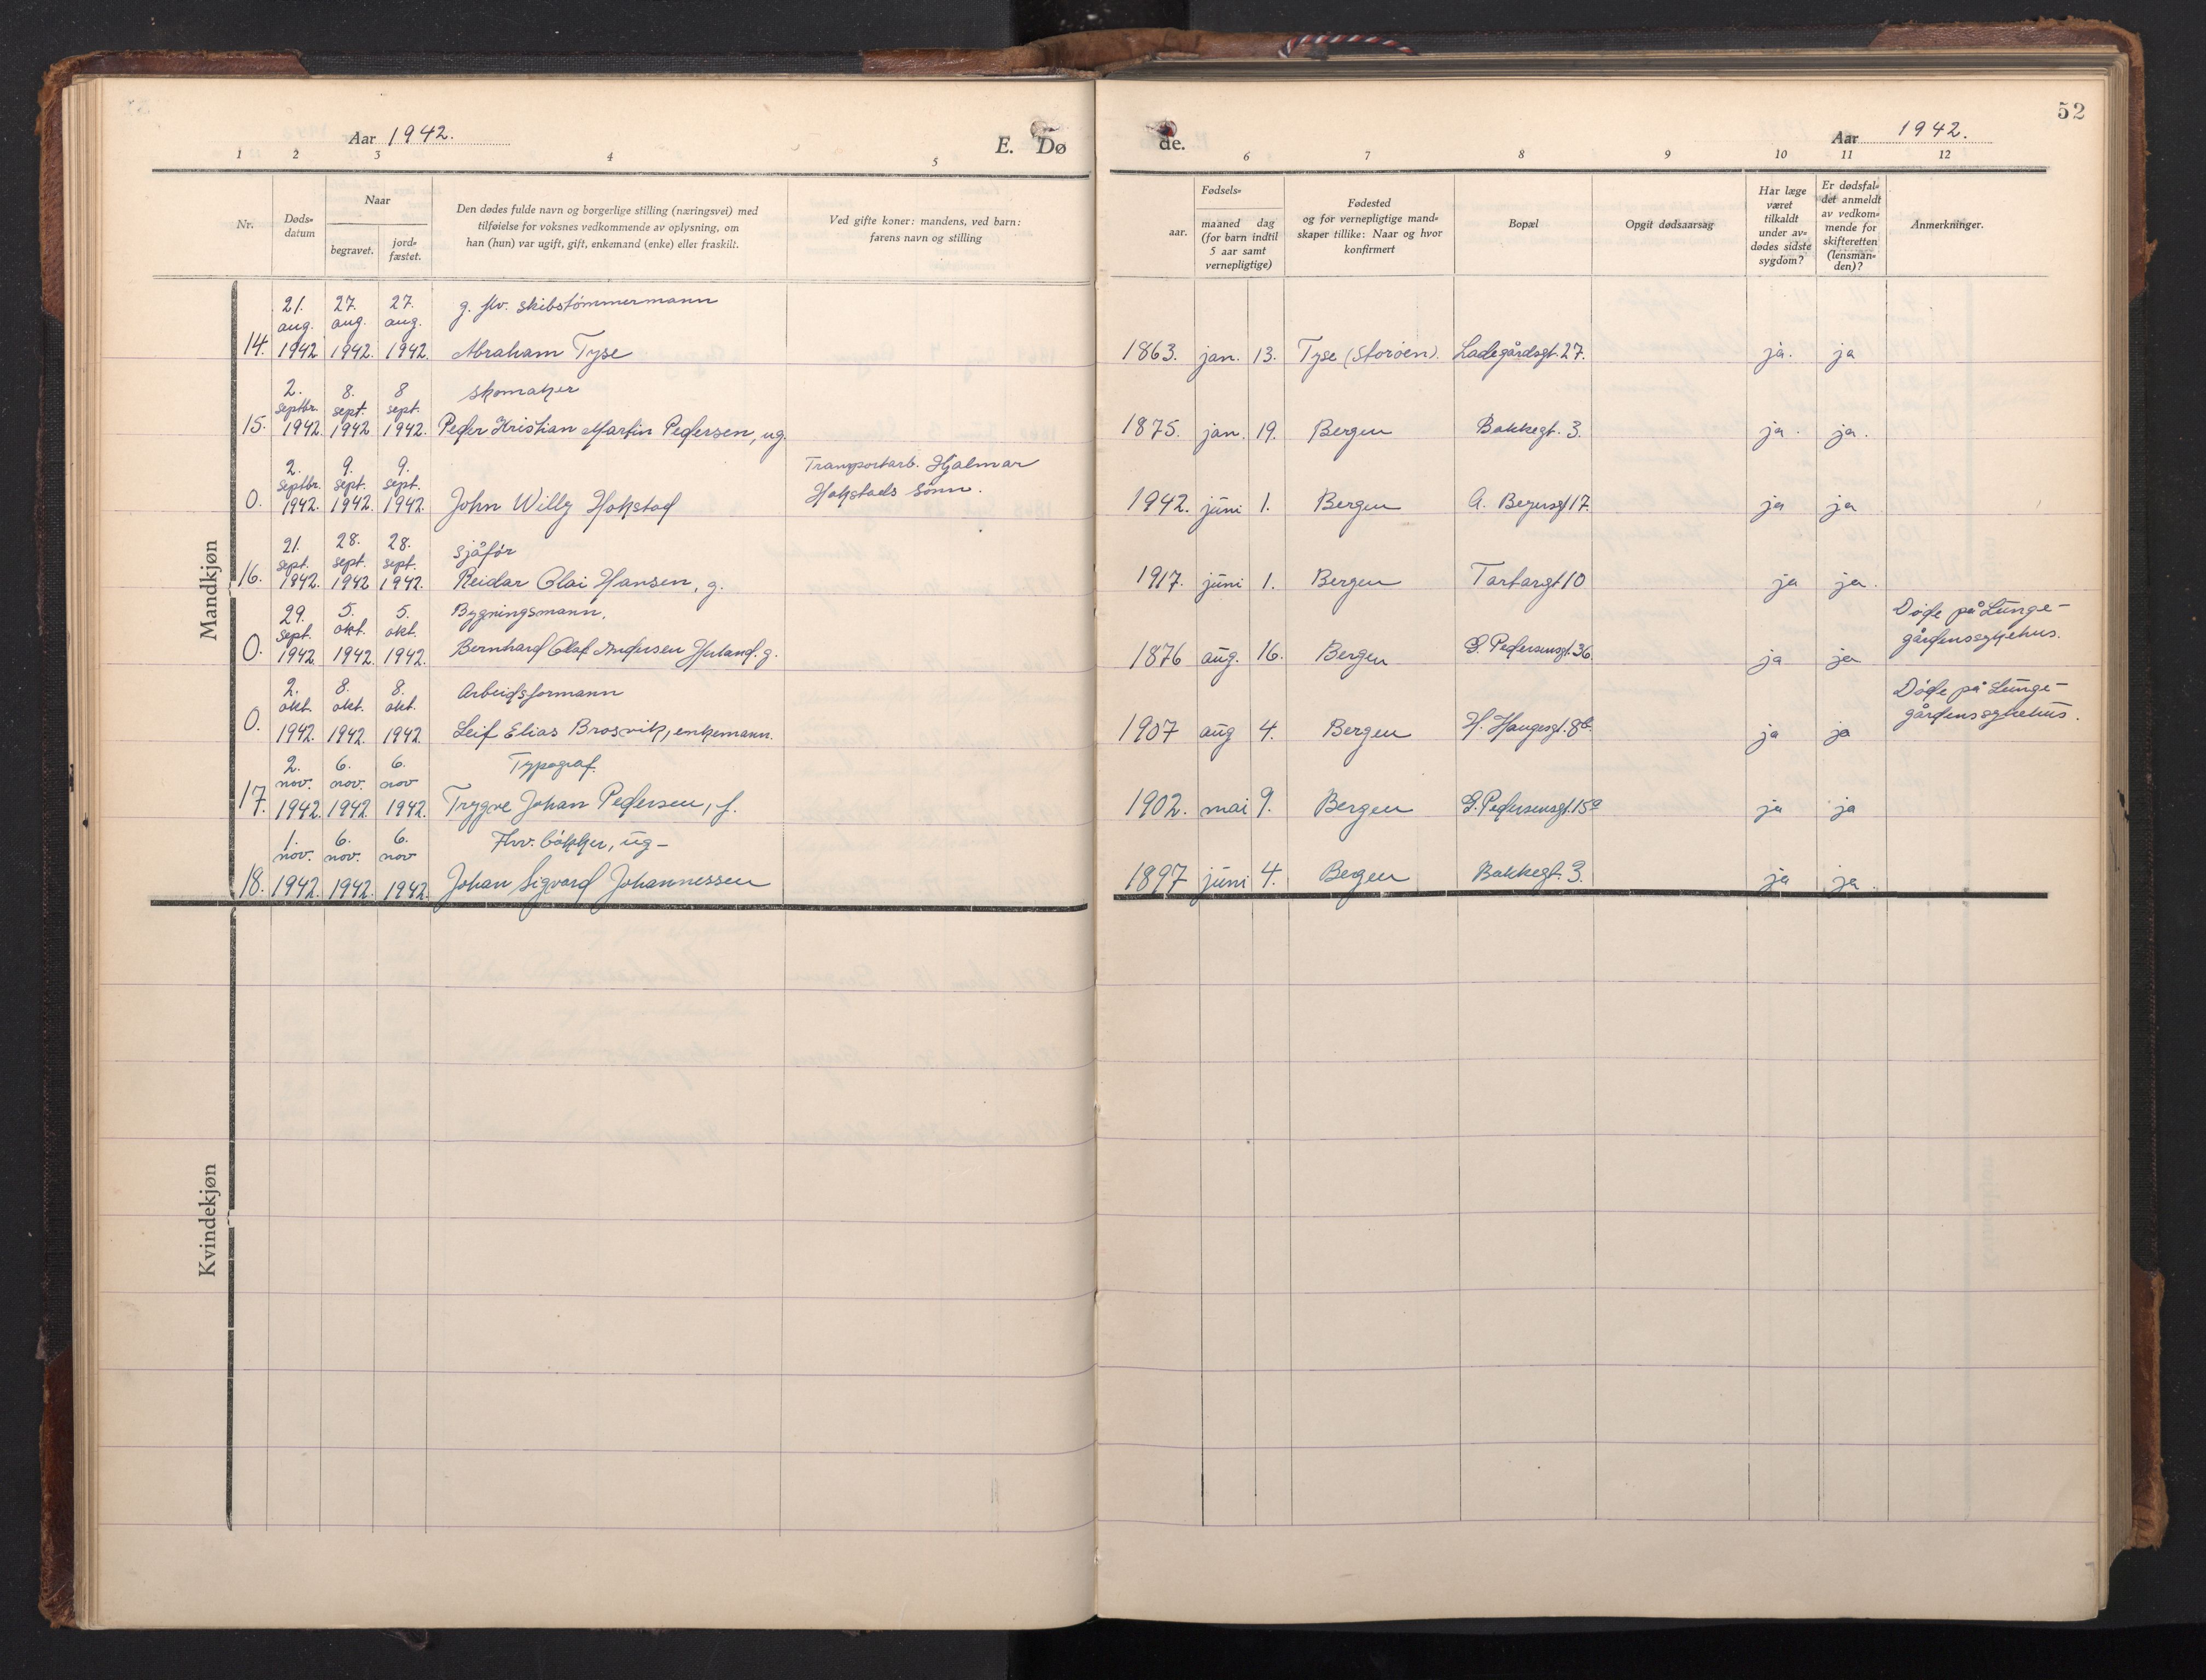 52
Aar 1942.
E. Dø
de.
Aar 1942.
1 2 3 4 5 6 7 8 9 10 11 12
Nr.
Døds-
datum
Naar
begravet.
jord-
fæstet.
Den dødes fulde navn og borgerlige stilling (næringsvei) med
tilføielse for voksnes vedkommende av oplysning, om
han (hun) var ugift, gift, enkemand (enke) eller fraskilt.
Ved gifte koner: mandens, ved barn:
farens navn og stilling
Fødsels-
aar.
maaned dag
(for barn indtil
5 aar samt
vernepligtige)
Fødested
og for vernepligtige mand-
skaper tillike: Naar og hvor
konfirmert
Bopæl
Opgit dødsaarsag
Har læge
været
tilkaldt
under av-
dødes sidste
sygdom?
Er dødsfal-
det anmeldt
av vedkom-
mende for
skifteretten
(lensman-
den)?
Anmerkninger.
Mandkjøn
21. 27. 27. g. fhv. skibstömmermann
aug. aug. aug.
14. 1942 1942. 1942. Abraham Tyse 1863. jan. 13. Tyse (Storöen). Ladegårdsgt. 27. ja. ja
2. 8. 8 skomaker
septbr. sept. sept.
15. 1942. 1942 1942. Peder Kristian Martin Pedersen, ug. 1875. jan. 19. Bergen Bakkegt. 3. ja. ja.
2. 9. 9. Transportarb. Hjalmar
septbr. sept. sept. Hokstads sönn.
0. 1942. 1942. 1942. John Willy Hokstad 1942. juni 1. Bergen 17. ja ja
21. 28. 28. sjåfør
sept. sept. sept.
16. 1942. 1942 1942. Reidar Olai Hansen, g. 1917. juni 1. Bergen Tartargt 10 ja ja.
29. 5. 5. Bygningsmann. Döde på Lunge-
sept. okt. okt. gårdenssykehus.
0. 1942 1942. 1942. Bernhard Olaf Andersen Herland. g. 1876 aug. 16. Bergen G. Pedersensgt. 36. ja ja
2. 8. 8. Arbeidsformann Döde på Lunge-
okt. okt. okt. gårdenssykehus.
0. 1942. 1942. 1942 Leif Elias Brosvik, enkemann. 1907 aug 4. Bergen H. Haugesgt. 8b. ja ja
2. 6. 6. Typograf.
nov. nov. nov
17. 1942. 1942. 1942 Trygve Johan Pedersen, f. 1902. mai 9. Bergen G. Pedersensgt. 15a ja ja
1. 6. 6. Fhv. bökker, ug-
nov. nov. nov
18. 1942. 1942. 1942. Johan Sigvard Johannessen 1897 juni 4. Bergen Bakkegt. 3. ja ja.
Kvindekjøn